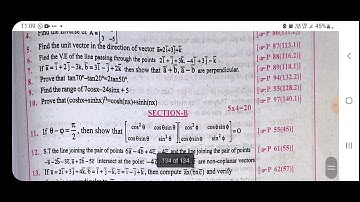 11:09
45%
4. Find the inverse of A =
3 -5
5. Find the unit vector in the direction of vector a=2i+3j+k [☞P 87(113.1)]
6. Find the V.E of the line passing through the points 2i+j+3k, -4i+3j-k [☞P 88(116.2)]
7. If a=i+2j-3k, b=3i-j+2k then show that a+b, a-b are perpendicular. [☞P 88(118.1)]
8. Prove that tan70°-tan20°=2tan50°. [☞P 94(132.1)]
9. Find the range of 7cosx-24sinx + 5 [☞P 93(128.2)]
10. Prove that (coshx+sinhx)ⁿ=cosh(nx)+sinh(nx) [☞P 97(140.1)]
SECTION-B 5x4=20
11. If θ-φ=π/2, then show that [cos²θ cosθsinθ cosθsinθ sin²θ] [cos²φ cosφsinφ cosφsinφ sin²φ]=O [☞P 55(45)]
12. S.T the line joining the pair of points 6a-4b+4c, -4c and the line joining the pair of points [☞P 61(55)]
-a-2b-3c, a+2b-5c intersect at the point -4c are non-coplanar vectors
134 of 134
13. If a=2i+3j+4k, b=i+j-k, c=i-j+k, then compute ax(bxc) [☞P 62(57)]